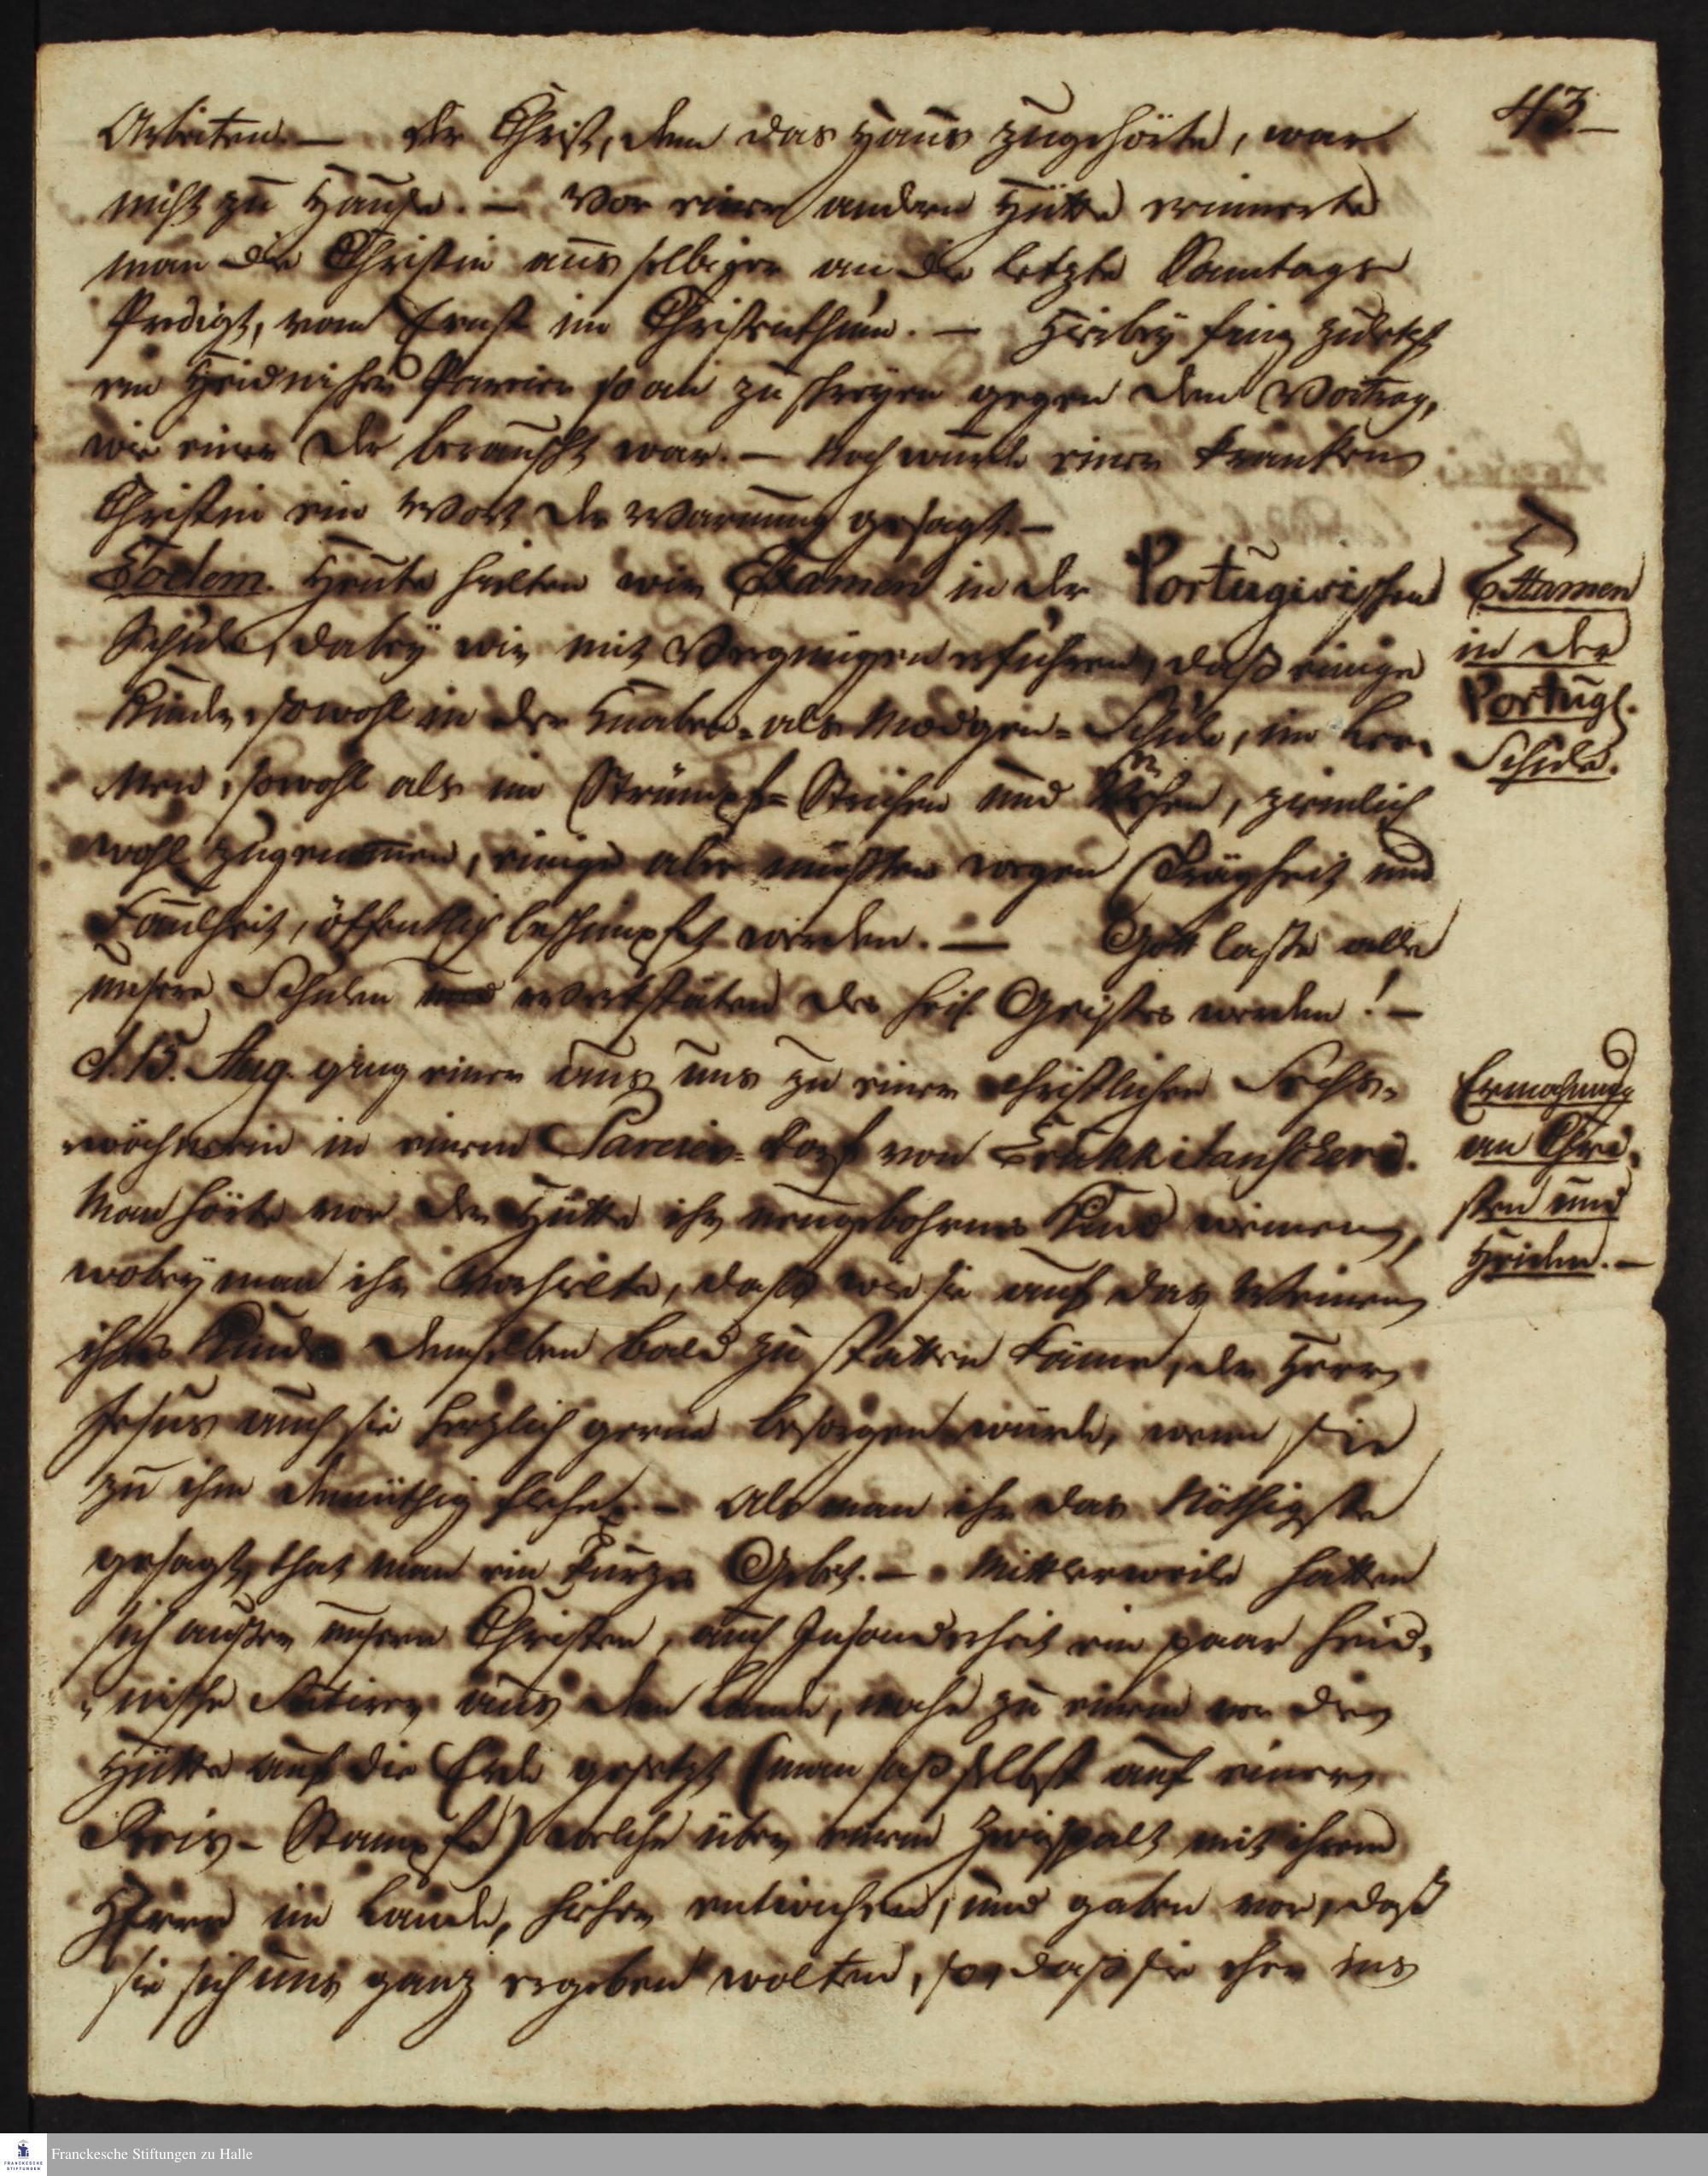 43.
Arbeiten. — Der Christ, dem das Haus zugehörte, war
nicht zu Hause. — Vor einer andern Hütte erinnerte
man die Christin aus selbiger an die letzte Sonntags
Predigt, vom Ernst im Christenthum. — Hierbey fing zuletzt
ein Heidnischer Pareier so an zu schreyen gegen den Vortrag,
wie einer der berauscht war. — Noch wurde einer kranken
Christin ein Wort der Warnung gesagt. —
Eodem. Heute hielten wir Examen in der Portugisischen
Schule, dabey wir mit Vergnügen erfuhren, daß einige
Kinder, sowohl in der Knaben- als Mädgen-Schule, im Ler-
nen, sowohl als im Strümpf-Stricken und Nehen, ziemlich
wohl zugenommen, einige aber mußten wegen Trägheit und
Faulheit, öffentlich beschimpft werden. — Gott laße alle
unsere Schulen Werkstäten des heil. Geistes werden! —
d. 15. Aug. ging einer aus uns zu einer christlichen Sechs-
wöchnerin in einem Pareier-Dorf von Erukkitanscheri.
Man hörte vor der Hütte ihr neugebohrnes Kind weinen,
wobey man ihr vorhielte, daß wie sie auf das Weinen
ihres Kindes demselben bald zu statten käme, der Herr
Jesus auch sie herzlich gerne besorgen würde, wenn sie
zu ihm demüthig flehe. — Als man ihr das Nöthigste
gesagt, that man ein kurzes Gebet. — Mitlerweile hatten
sich außer unsern Christen, auch Insonderheit ein paar heid-
nische aus dem Lande, nahe zu einem vor der
Hütte auf die Erde gesetzt (man saß selbst auf einer
Reis-Stampfe) welche über einem Zwispalt mit ihrem
Herrn im Lande, hieher entwichen, und gaben vor, daß
sie sich uns ganz ergeben wolten, so, daß sie eher ins
Examen
in der
Portugs.
Schule.
Ermahnung
an Chri-
sten und
Heiden. —
Franckesche Stiftungen zu Halle